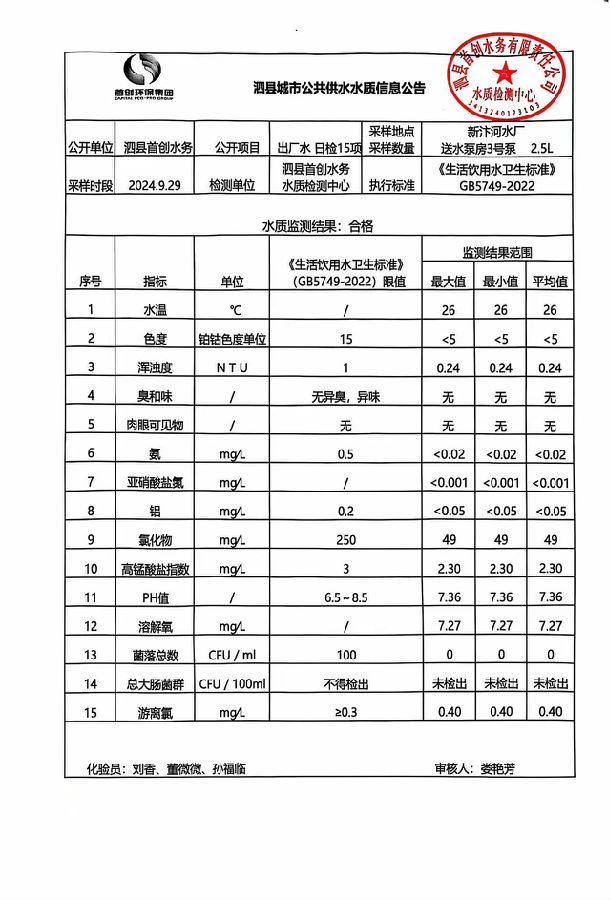 首创环保集团
CAPITAL ECO-PRO GROUP
泗县城市公共供水水质信息公告
泗县首创水务有限责任公司
水质检测中心
公开单位 泗县首创水务 公开项目 出厂水 日检15项 采样地点 采样数量 新汴河水厂 送水泵房3号泵 2.5L
采样时段 2024.9.29 检测单位 泗县首创水务 水质检测中心 执行标准 《生活饮用水卫生标准》 GB5749-2022
水质监测结果：合格
序号 指标 单位 《生活饮用水卫生标准》（GB5749-2022）限值 监测结果范围
最大值 最小值 平均值
1 水温 ℃ / 26 26 26
2 色度 铂钴色度单位 15 <5 <5 <5
3 浑浊度 NTU 1 0.24 0.24 0.24
4 臭和味 / 无异臭，异味 无 无 无
5 肉眼可见物 / 无 无 无 无
6 氨 mg/L 0.5 <0.02 <0.02 <0.02
7 亚硝酸盐氮 mg/L / <0.001 <0.001 <0.001
8 铝 mg/L 0.2 <0.05 <0.05 <0.05
9 氯化物 mg/L 250 49 49 49
10 高锰酸盐指数 mg/L 3 2.30 2.30 2.30
11 PH值 / 6.5~8.5 7.36 7.36 7.36
12 溶解氧 mg/L / 7.27 7.27 7.27
13 菌落总数 CFU / ml 100 0 0 0
14 总大肠菌群 CFU / 100ml 不得检出 未检出 未检出 未检出
15 游离氯 mg/L ≥0.3 0.40 0.40 0.40
化验员：刘香、董微微、孙福临 审核人：娄艳芳